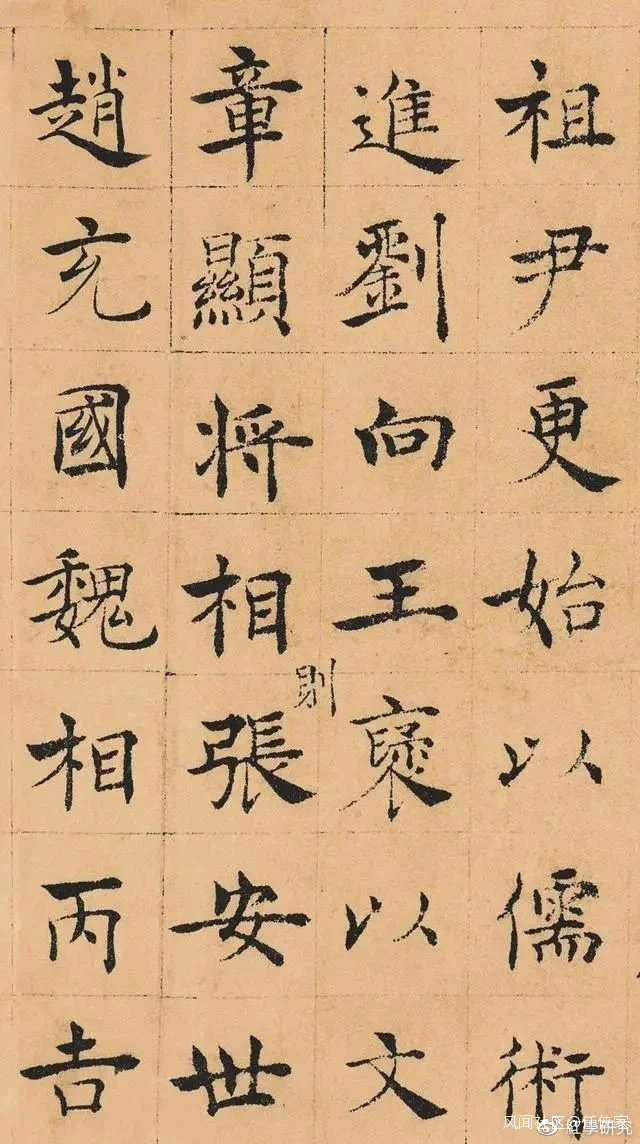 祖尹更始以儒術
進劉向王褒以文
章顯將相張安世
則
趙充國魏相丙吉
风闻社区@任侠宗